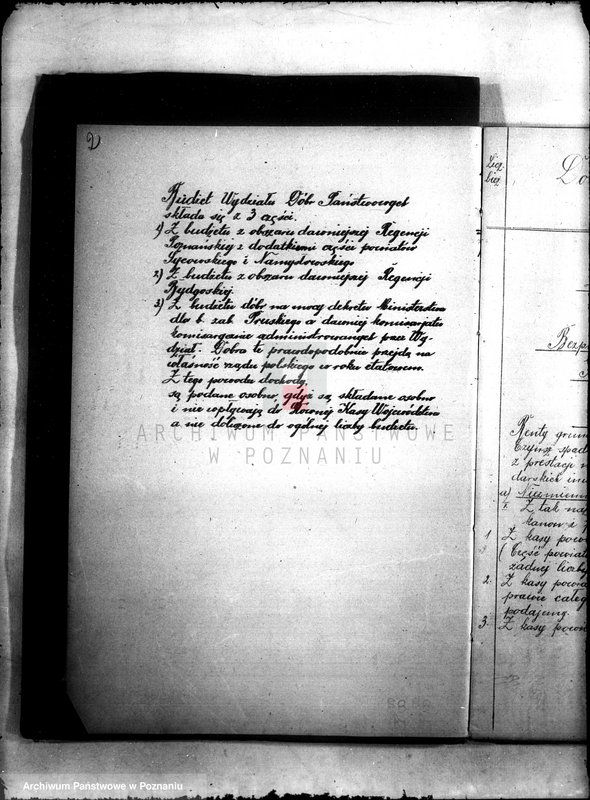 2)
Budżet Wydziału Dóbr Państwowych
składa się z 3 części.
1) Z budżetu z obszaru dawniejszej Regencji
Poznańskiej z dodatkiem części powiatów
Sycowskiego i Namysłowskiego
2) Z budżetu z obszaru dawniejszej Regencji
Bydgoskiej
3) Z budżetu dóbr na mocy dekretu Ministerstwa
dla b. zab. Pruskiego a dawniej komisarjatu
administrowanych przez Wy-
dział. Dobra te prawdopodobnie przejdą na
własność rządu polskiego w roku etatowem.
Z tego powodu dochody,
są podane osobno, gdyż są składane osobno
i nie wpływają do Głównej Kasy Województwa
a nie doliczone do ogólnej liczby budżetu.
ARCHIWUM PAŃSTWOWE
W POZNANIU
Licz.
bież.
Do
Bezp
Renty grun
Czynsz
z prestacji
darskich
a) Niezmienn
I. Z tak
kanon i
1. Z kasy pow
(Część powiatu
żadnej liczby
2. Z kasy powia
prawie całeg
podajemy
3. Z kasy powia
Archiwum Państwowe w Poznaniu